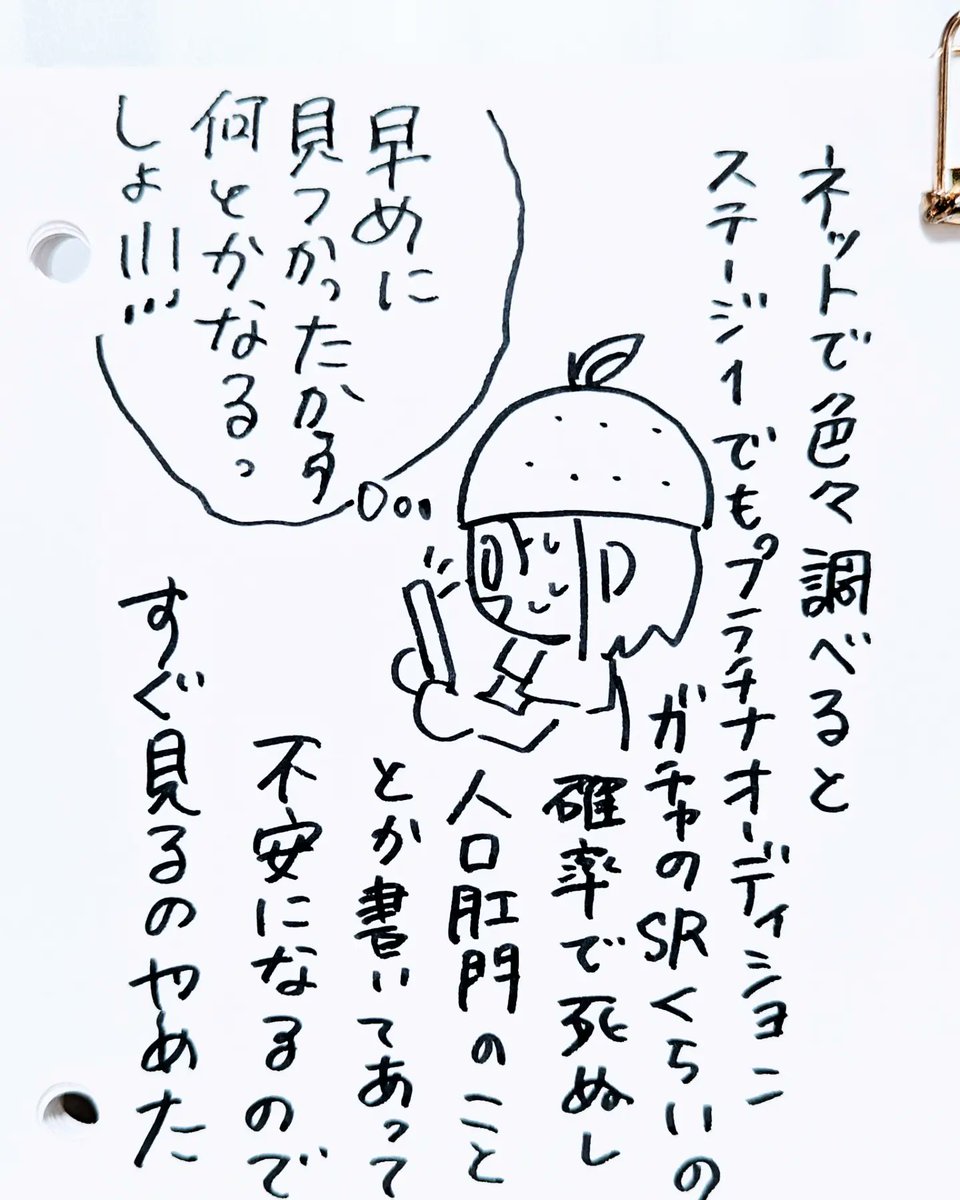 ネットで色々調べると
ステージ1でも。プラチナオーディション
ガチャのSRくらいの
確率で死ぬし
人口肛門のこと
とか書いてあって
不安になるので
すぐ見るのやめた
早めに
見つかったから
何とかなるっ
しょ!!!